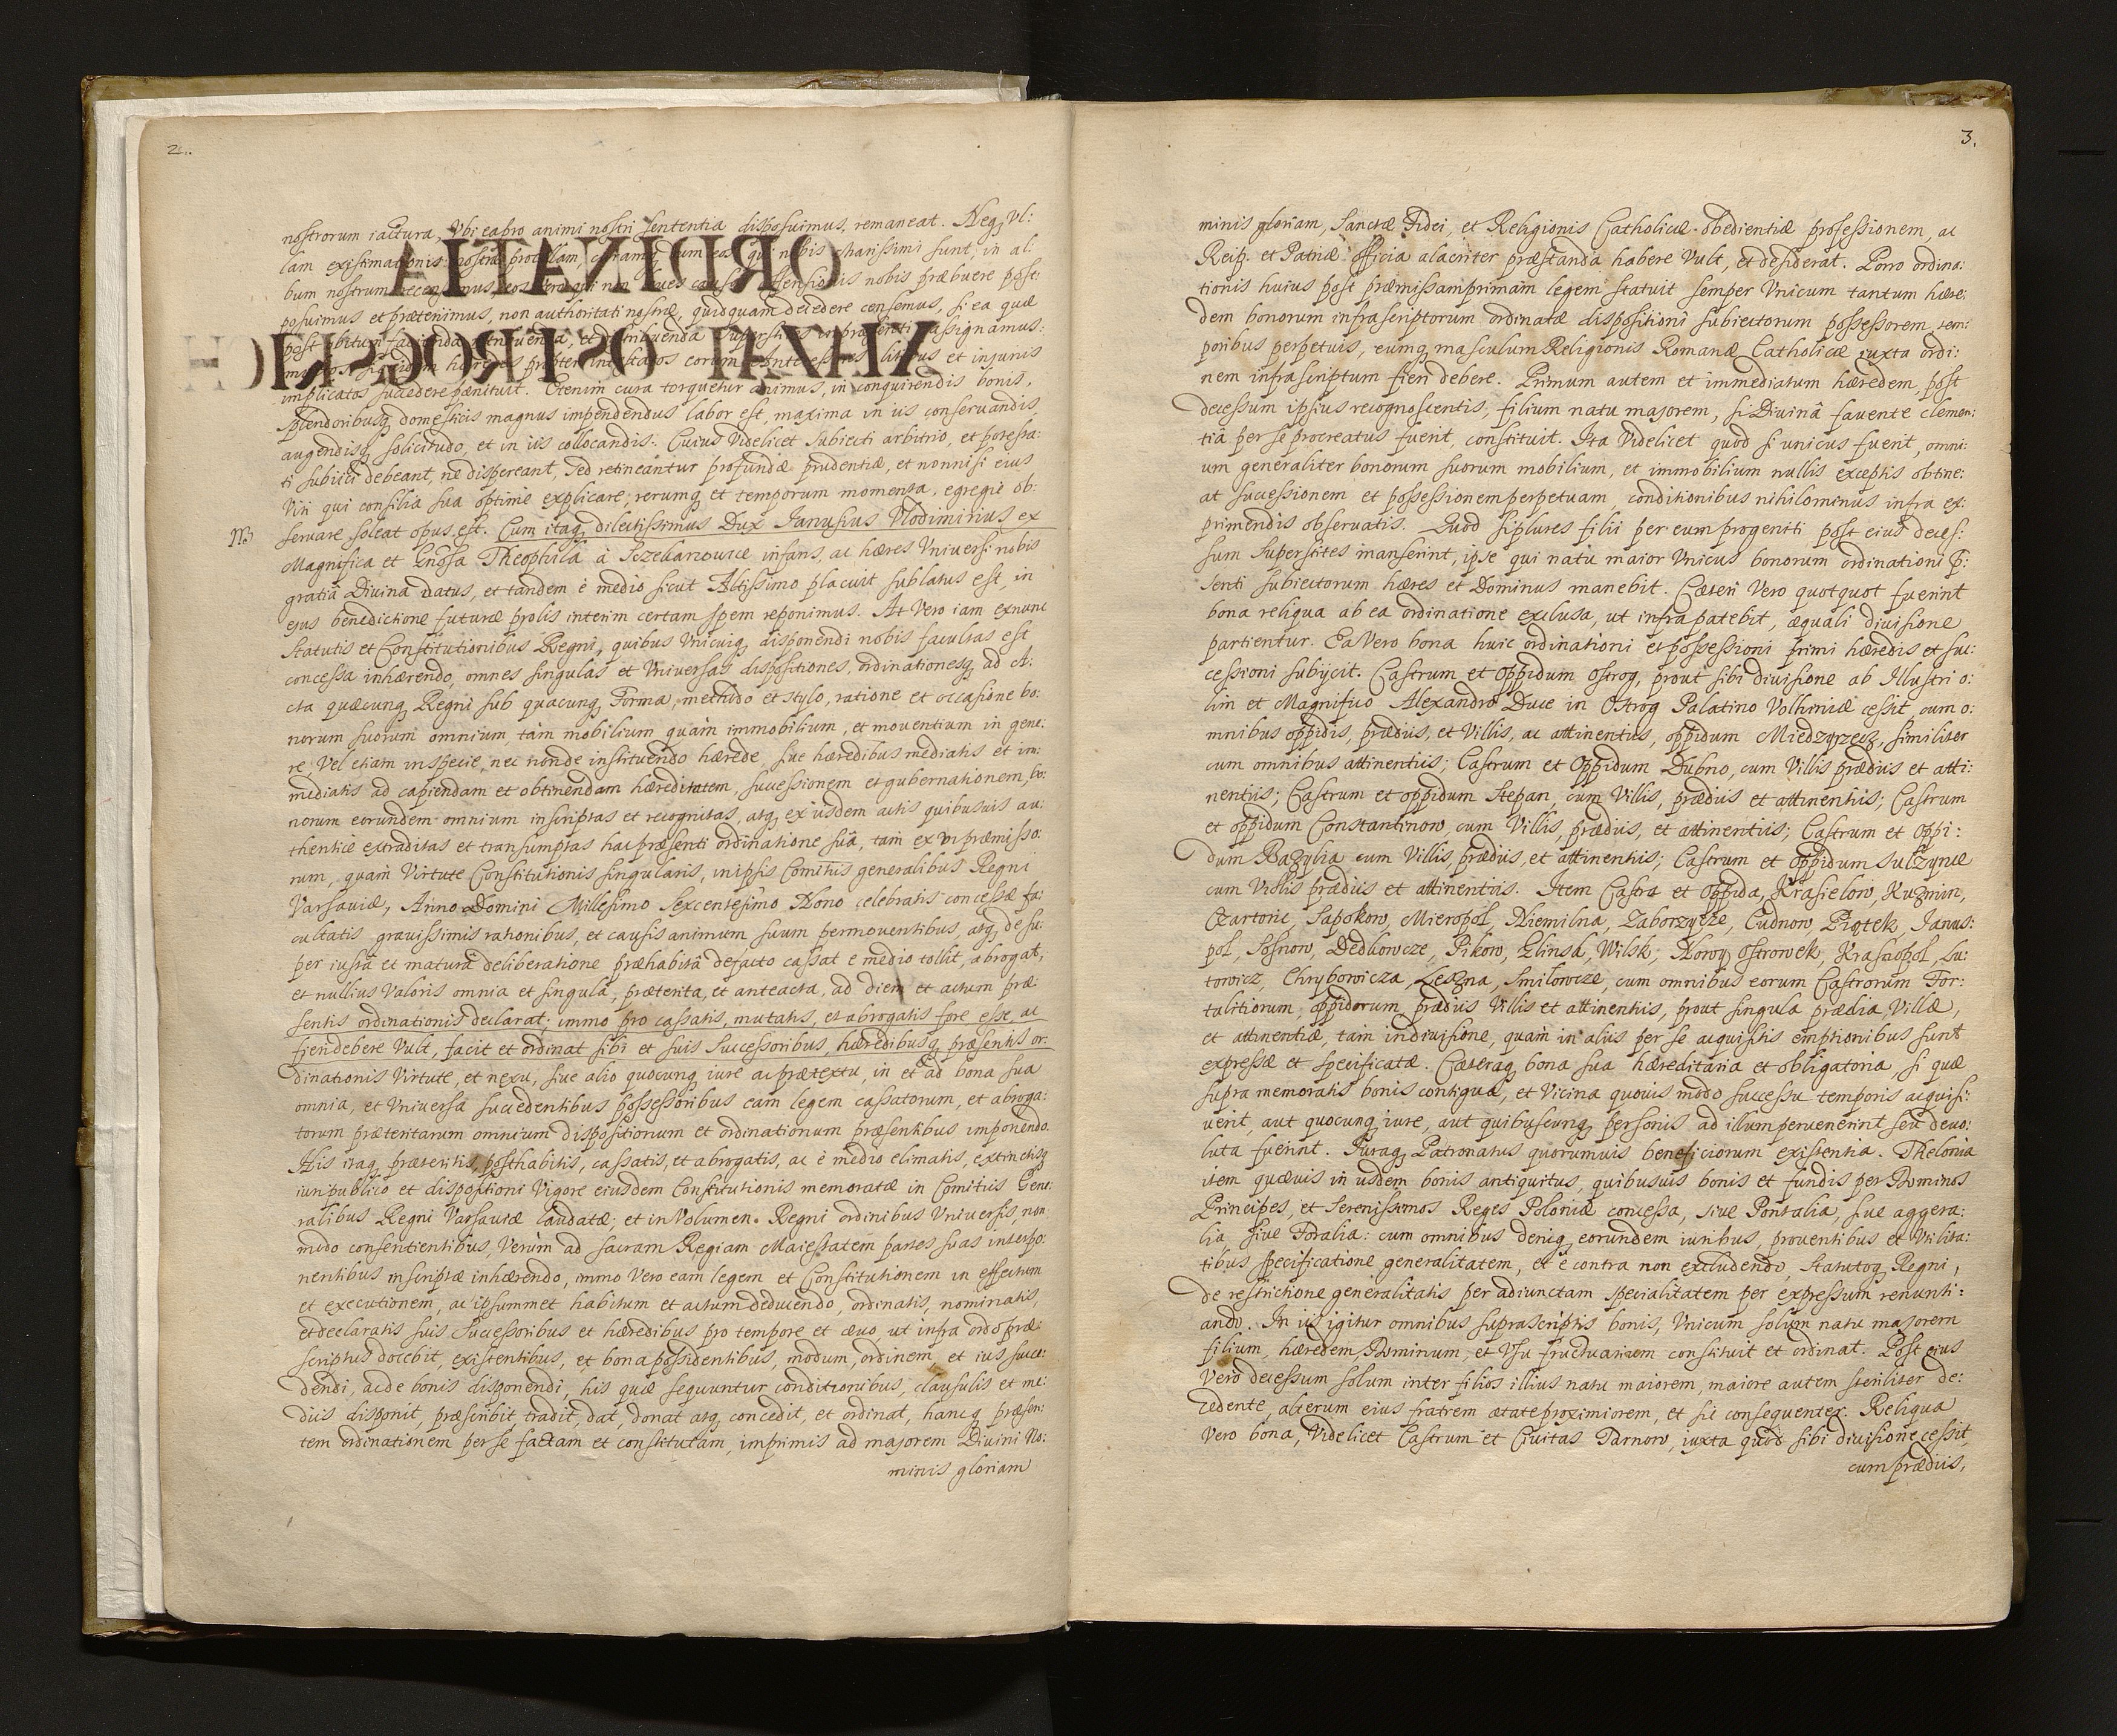 2.
nostrorum iactura, Vbi ea pro animi nostri sententia disposuimus, remaneat. Neq, vl:
lam existimationis nostræ procellam, curamus, dum eos qui nobis charissimi sunt, in al:
bum nostrum
posuimus et prætenimus, non authoritati nostræ, quidquam decedere censemus, si ea quæ
post obitum facienda, retribuenda, et distribuenda superstites in præsenti assignamus:
litibus et iniurijs
implicatos succedere pænituit. Etenim cura torquetur animus, in conquirendis bonis,
splendoribusq, domesticis magnus impendendus labor est, maxima in iis conseruandis
augendisq, solicitudo, et in iis collocandis. Cuius Videlicet Subiecti arbitrio, et potesta:
ti subijci debeant, ne dispereant, sed retineantur profundæ prudentiæ, et nonnisi eius
Viri qui consilia sua optime explicare, rerumq, et temporum momenta, egregie ob:
NB seruare soleat opus est. Cum itaq, dilectissimus Dux Janusius Vlodimirius ex
Magnifica et Gnosa Theophila à Sczekarzowice infans, ac hæres Vniuersi nobis
gratiâ Diuinâ datus, et tandem è medio sicut Altissimo placuit sublatus est, in
ejus benedictione futuræ prolis interim certam spem reponimus. At Vero iam exnunc
Statutis et Constitutionibus Regni, quibus Vnicuiq, disponendi nobis facultas est
concessa inhærendo, omnes singulas et Vniuersas dispositiones, ordinationesq, ad A:
cta quæcunq, Regni sub quacunq, Forma, methodo et stylo, ratione et occasione bo:
norum suorum omnium, tàm mobilium quàm immobilium, et mouentium in gene:
re, Vel etiam in specie, nec nonde instituendo hærede, siue hæredibus mediatis et im:
mediatis ad capiendam et obtinendam hæreditatem, successionem et gubernationem, bo:
norum eorundem omnium inscriptas et recognitas, atq, ex iisdem actis quibusuis au:
thentice extraditas et transumptas hac præsenti ordinatione suâ, tam ex vi præmisso:
rum, quàm Virtute Constitutionis singularis, in ipsis Comitiis generalibus Regni
Varsauiæ, Anno Domini Millesimo Sexcentesimo Nono celebratis concessæ fa:
cultatis grauissimis rationibus, et causis animum suum permouentibus, atq, de su:
per iustâ et maturâ deliberatione præhabitâ defacto cassat e medio tollit, abrogat,
et nullius Valoris omnia et singula, præterita, et anteacta, ad diem et actum præ:
sentis ordinationis declarat; immo pro cassatis, mutatis, et abrogatis fore esse, ac
fieri debere Vult, facit et ordinat sibi et suis Successoribus, hæredibusq, præsentis or:
dinationis Virtute, et nexu, siue alio quocunq, iure ac prætextu, in et ad bona sua
omnia, et Vniuersa succedentibus possessoribus eam legem cassatorum, et abroga:
torum præteritarum omnium dispositionum et ordinationum præsentibus imponendo.
His itaq, præteritis, posthabitis, cassatis, et abrogatis, ac è medio elimatis, extinctisq,
iuri publico et dispositioni Vigore eiusdem Constitutionis memoratæ in Comitiis Gene:
ralibus Regni Varsauiæ laudatæ, et in Volumen Regni ordinibus Vniuersis, non
modo consentientibus, Verùm ad sacram Regiam Maiestatem partes suas interpo:
nentibus inscriptæ inhærendo, immo Vero eam legem et Constitutionem in effectum
et executionem, ac ipsummet habitum et actum deducendo, ordinatis, nominatis,
et declaratis suis Successoribus et hæredibus pro tempore et æuo, ut infra ordo præ:
scriptus docebit, existentibus, et bona possidentibus, modum, ordinem, et ius succe:
dendi, ac de bonis disponendi, his quæ sequuntur conditionibus, clausulis et me:
diis disponit, præscribit, tradit, dat, donat atq, concedit, et ordinat, hancq, præsen:
tem ordinationem per se factam et constitutam, imprimis ad majorem Diuini No:
minis gloriam
3.
minis gloriam, Sanctæ Fidei, et Religionis Catholicæ obedientiæ professionem, ac
Reip. et Patriæ officia alacriter præstanda habere Vult, et desiderat. Porro ordina:
tionis huius post præmissam primam legem statuit semper Vnicum tantum hære:
dem bonorum infrascriptorum ordinatæ dispositioni subiectorum possessorem tem:
poribus perpetuis, eumq, masculum Religionis Romanæ Catholicæ iuxta ordi:
nem infrascriptum fieri debere. Primum autem et immediatum hæredem, post
decessum ipsius recognoscentis, filium natu majorem, si Diuinâ fauente clemen:
tiâ per se procreatus fuerit, constituit. Ita Videlicet quod si unicus fuerit, omni:
um generaliter bonorum suorum mobilium, et immobilium nullis exceptis obtine:
at successionem et possessionem perpetuam, conditionibus nihilominus infra ex:
primendis obseruatis. Quod si plures filii per eum progeniti post eius deces:
sum Superstites manserint, ipse qui natu maior Vnicus bonorum ordinationi p̄:
senti subiectorum hæres et Dominus manebit. Cæteri Vero quotquot fuerint
bona reliqua ab ea ordinatione exclusa, ut infra patebit, æquali diuisione
partientur. Ea Vero bona huic ordinationi et possessioni primi hæredis et suc:
cessioni subijcit. Castrum et Oppidum Ostrog, prout sibi diuisione ab Illustri o:
lim et Magnifico Alexandro Duce in Ostrog Palatino Volhiniæ cessit, cum o:
mnibus oppidis, prædiis, et Villis, ac attinentiis, oppidum Miedzyrzecz, similiter
cum omnibus attinentiis; Castrum et Oppidum Dubno, cum Villis prædiis et atti:
nentiis; Castrum et oppidum Stepan, cum Villis, prædiis et attinentiis; Castrum
et oppidum Constantinow, cum Villis, prædiis, et attinentiis; Castrum et Oppi:
dum Bazylia cum Villis, prædiis, et attinentiis; Castrum et Oppidum Sulzynce
cum Villis prædiis et attinentiis. Item Castra et Oppida, Krasielow, Kuzmin,
Czartorie, Sapokow, Mieropol, Niemilna, Zaborzycze, Cudnow, Piątek, Janus:
pol, Sosnow, Dedkowcze, Pikow, Glinsk, Wilsk, Nowy Ostrowek, Krasnopol, Lu:
towicz, Chrybowicza, Leszna, Smilowcze, cum omnibus eorum Castrorum For:
talitiorum, oppidorum prædiis Villis et attinentiis, prout singula prædia, Villæ,
et attinentiæ, tam in diuisione, quàm in aliis per se acquisitis emptionibus sunt
expressæ et specificatæ. Cæteraq, bona sua hæreditaria et obligatoria, si quæ
supra memoratis bonis contigua, et Vicina quouis modo successu temporis acquisi:
uerit, aut quocunq, iure, aut quibuscunq, personis ad illum peruenerint seu deuo:
luta fuerint. Juraq, Patronatus quorumuis beneficiorum existentia. Thelonia
item quæuis in iisdem bonis antiquitus, quibusuis bonis et fundis per Dominos
Principes, et Serenissimos Reges Poloniæ concessa, siue Pontalia, siue aggera:
lia siue Foralia: cum omnibus deniq, eorundem iuribus, prouentibus et Vtilita:
tibus specificatione generalitatem, et è contra non excludendo, Statutoq, Regni,
de restrictione generalitatis per adiunctam specialitatem per expressum renunti:
ando. In iis igitur omnibus suprascriptis bonis, Vnicum solum natu majorem
filium, hæredem Dominum, et Vsu fructuarium constituit et ordinat. Post eius
Vero decessum solum inter filios illius natu maiorem, maiore autem steriliter de:
cedente, alterum eius fratrem ætate proximiorem, et sic consequenter. Reliqua
Vero bona, Videlicet Castrum et Ciuitas Tarnow, iuxta quod sibi diuisione cessit,
cum prædiis,